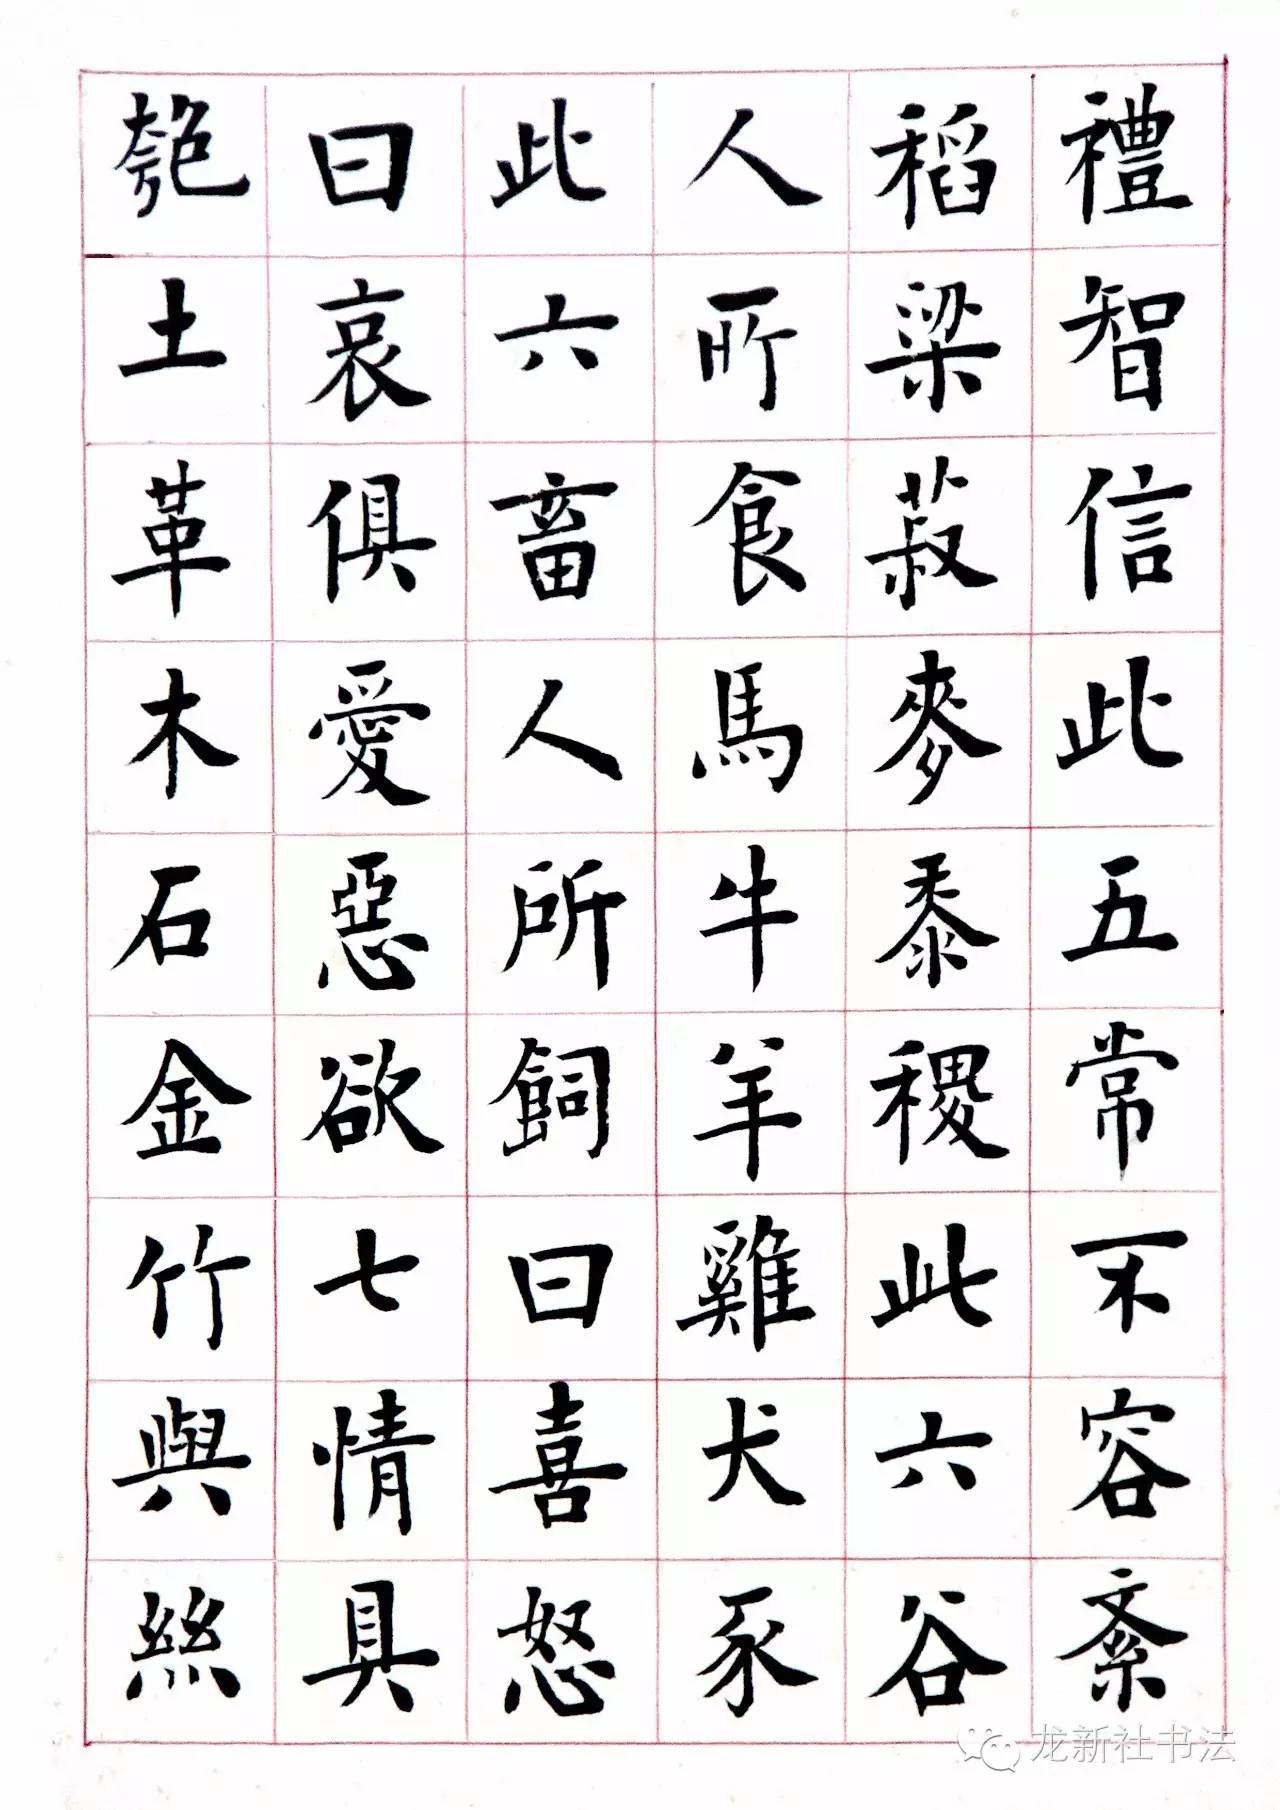 禮智信此五常不容紊
稻粱菽麥黍稷此六谷
人所食馬牛羊雞犬豕
此六畜人所飼曰喜怒
曰哀俱愛惡欲七情具
匏土革木石金竹與絲
龙新社书法